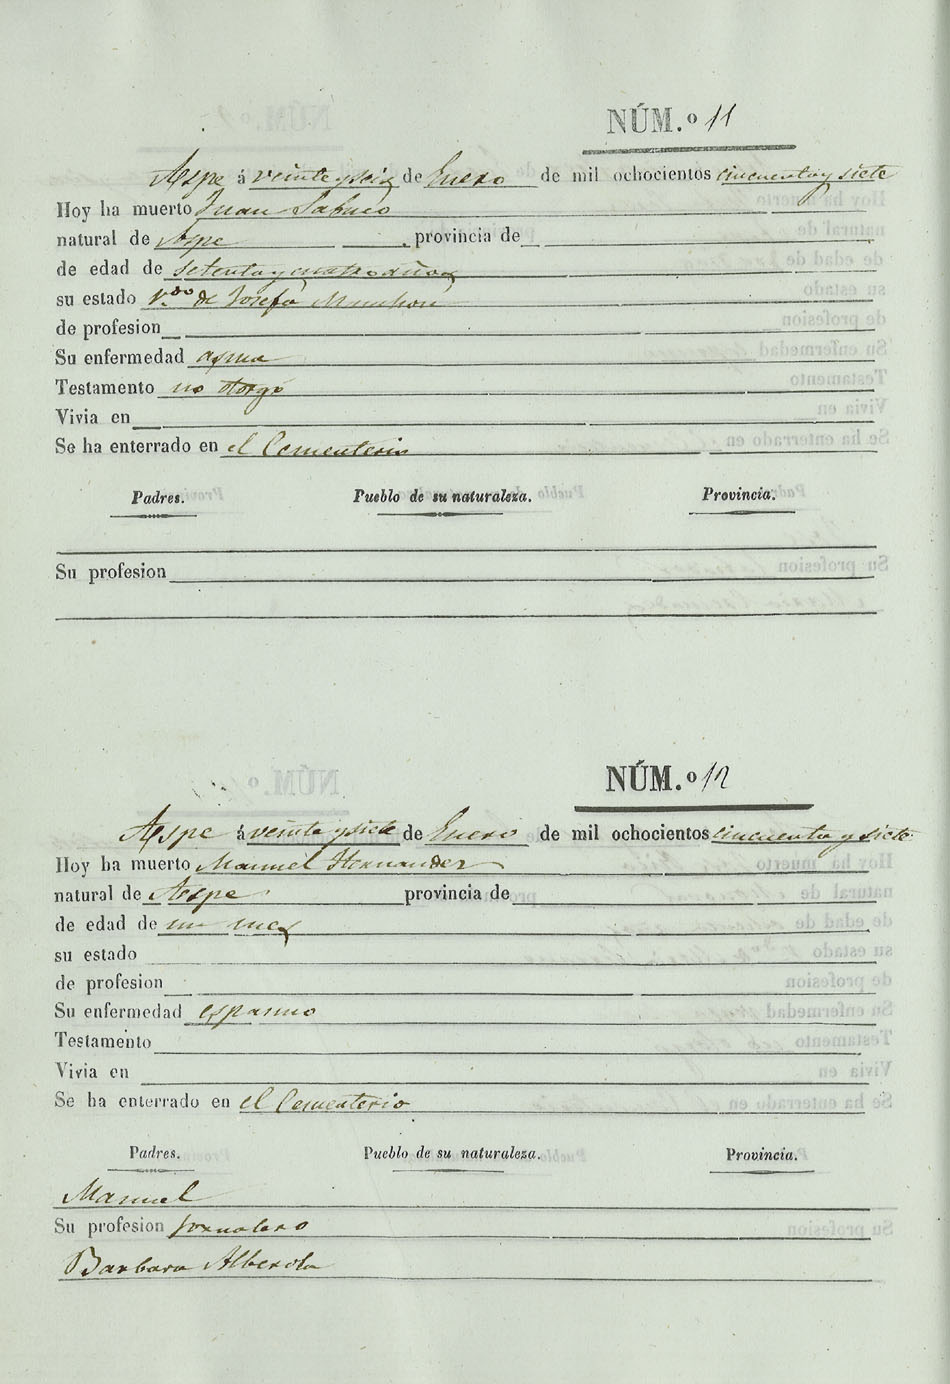 NÚM.º 11
Aspe á veinte y seis de Enero de mil ochocientos cincuenta y siete
Hoy ha muerto Juan Sabuco
natural de Aspe provincia de
de edad de setenta y cuatro años
su estado v.do de Josefa
de profesion
Su enfermedad asma
Testamento no otorgó
Vivia en
Se ha enterrado en el Cementerio
Padres. Pueblo de su naturaleza. Provincia.
Su profesion
NÚM.º 12
Aspe á veinte y siete de Enero de mil ochocientos cincuenta y siete
Hoy ha muerto Manuel Hernandez
natural de Aspe provincia de
de edad de un mes
su estado
de profesion
Su enfermedad espasmo
Testamento
Vivia en
Se ha enterrado en el Cementerio
Padres. Pueblo de su naturaleza. Provincia.
Manuel
Su profesion Jornalero
Barbara Alberola